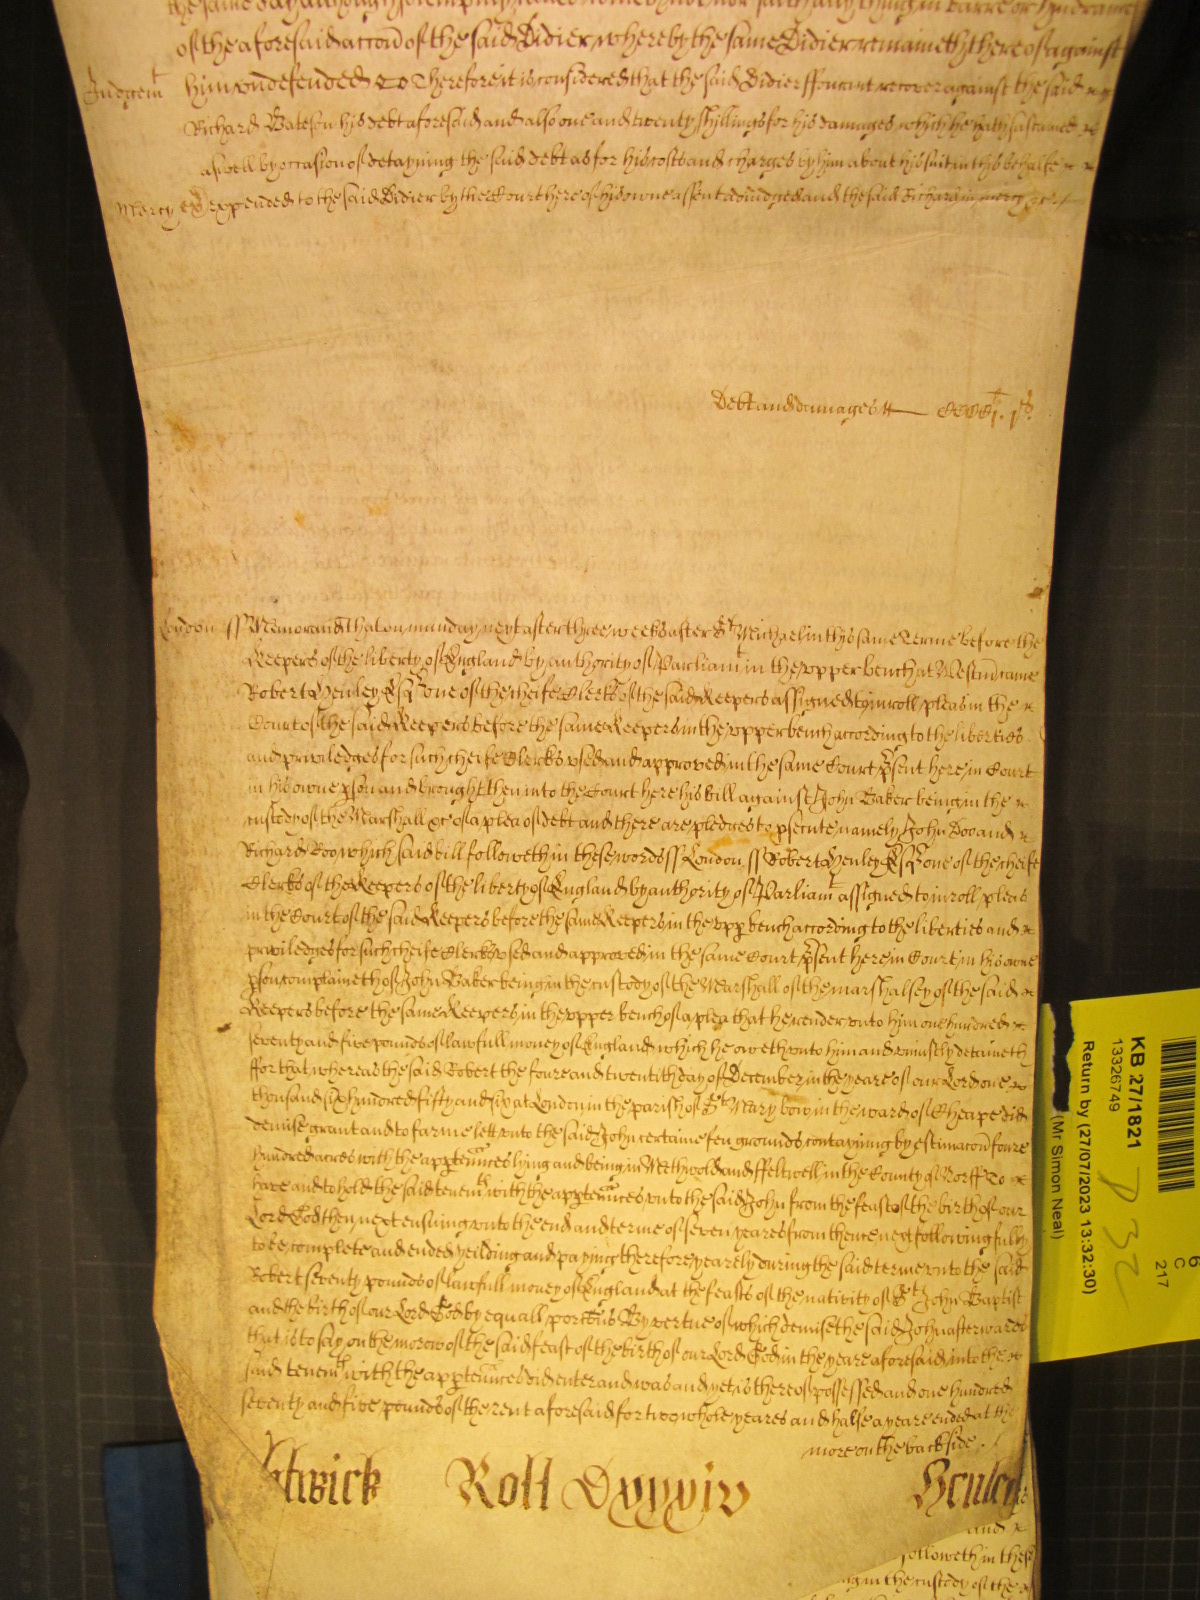 of the aforesaid accon of the said Didier whereby the same Didier remaineth thereof against
Judgemt him undefended Therefore it is considered that the said Didier ffoucant recover against the said
Richard Bateson his debt aforesaid and also one and twenty shillings for his damages which he hath sustained
aswell by occasion of detayning the said debt as for his costs and charges by him about his suit in this behalfe
Mercy expended to the said Didier by the Court here of his owne assent adiudged and the said Richard in mercy &c
Debt and damages
London ss Memorand That on munday next after three weeks after St Michael in this same Terme before the
Keepers of the liberty of England by authority of Parliamt in the upper bench at Westm came
Robert Henley Esqr one of the cheife Clerks of the said Keepers assigned to inroll pleas in the
Court of the said Keepers before the same Keepers in the upper bench according to the liberties
and priviledges for such cheife Clerks used and approved in the same Court psent here in Court
in his owne pson and brought then into the Court here his bill against John Baker being in the
custody of the Marshall &c of a plea of debt and there are pledges to psecute namely John Doo and
Richard Roo which said bill followeth in these words ss London ss Robert Henley Esqr one of the cheife
Clerks of the Keepers of the liberty of England by authority of Parliamt assigned to inroll pleas
in the Court of the said Keepers before the same Keepers in the upp bench according to the liberties and
priviledges for such cheife Clerks used and approved in the same Court psent here in Court in his owne
pson complaineth of John Baker being in the custody of the Marshall of the marshalsey of the said
Keepers before the same Keepers in the upper bench of a plea that he render unto him one hundred
seventy and five pounds of lawfull money of England which he oweth unto him and uniustly detaineth
ffor that whereas the said Robert the foure and twentith day of December in the yeare of our Lord one
thousand six hundred fifty and six at London in the parish of St Mary bow in the ward of Cheape did
demise grant and to farme lett unto the said John certaine fen grounds contayning by estimacon foure
hundred acres with the apptennces lying and being in Methwold and ffeltwell in the County of Norff To
have and to hold the said tenemts with the apptennces unto the said John from the feast of the birth of our
Lord God then next ensuing unto the end and terme of seven yeares from thence next following fully
to be complete and ended yeilding and paying therefore yearely during the said terme unto the said
Robert seventy pounds of lawfull money of England at the feasts of the nativity of St John Baptist
and the birth of our Lord God by equall porcons By vertue of which demise the said John afterwards
that is to say on the morow of the said feast of the birth of our Lord God in the yeare aforesaid into the
said tenemts with the apptennces did enter and was and yet is thereof possessed and one hundred
seventy and five pounds of the rent aforesaid for two whole yeares and halfe a yeare ended at the
more on the back side
Roll Dxxxiv Henley
and
followeth in these
in the custody of the
KB 27/1821
13326749
Return by (27/07/2023 13:32:30)
(Mr Simon Neal)
6
C
217